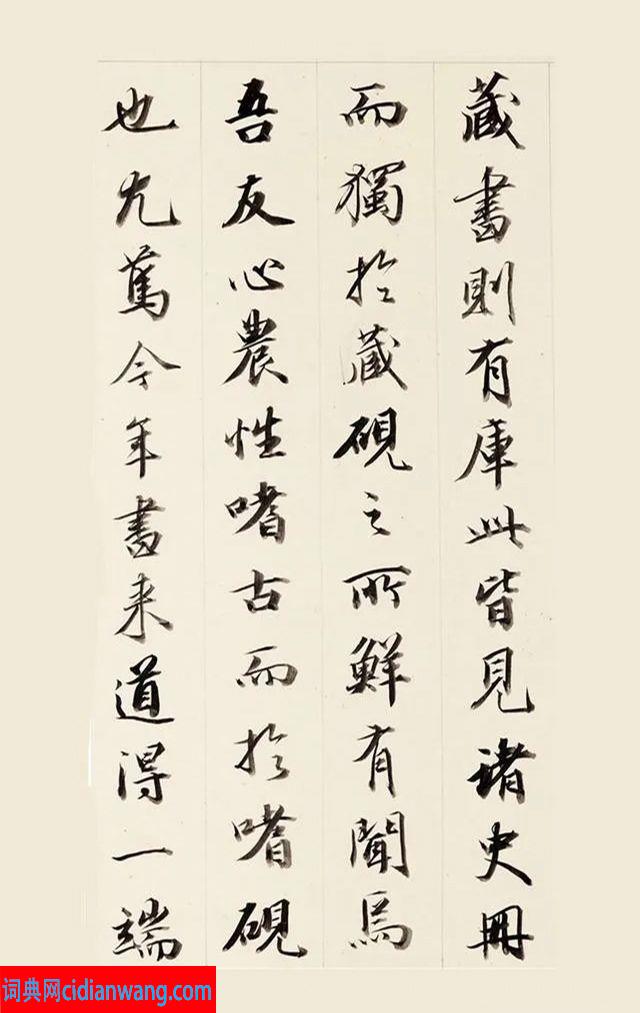 藏書則有庫此皆見諸史冊
而獨於藏硯之所鮮有聞焉
吾友心農性嗜古而於嗜硯
也尤篤今年書來道得一端
词典网cidianwang.com